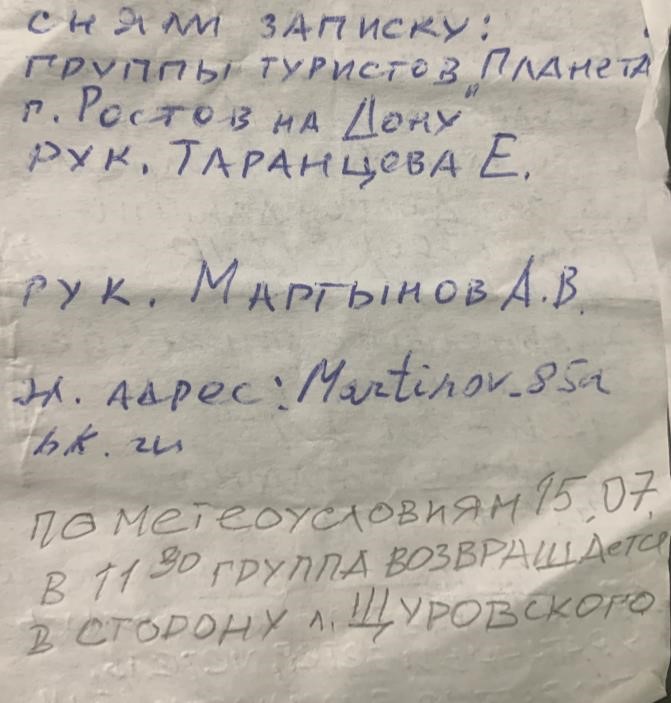 СНЯЛИ ЗАПИСКУ:
ГРУППЫ ТУРИСТОВ „Планета
г. Ростов на Дону"
РУК. ТАРАНЦЕВА Е.
РУК. МАРТЫНОВ А.В.
эл. АДРЕС: Martinov_85a
bk.ru
ПО МЕТЕОУСЛОВИЯМ 15.07.
В 11 30 ГРУППА ВОЗВРАЩАЕТСЯ
В СТОРОНУ л. ЩУРОВСКОГО